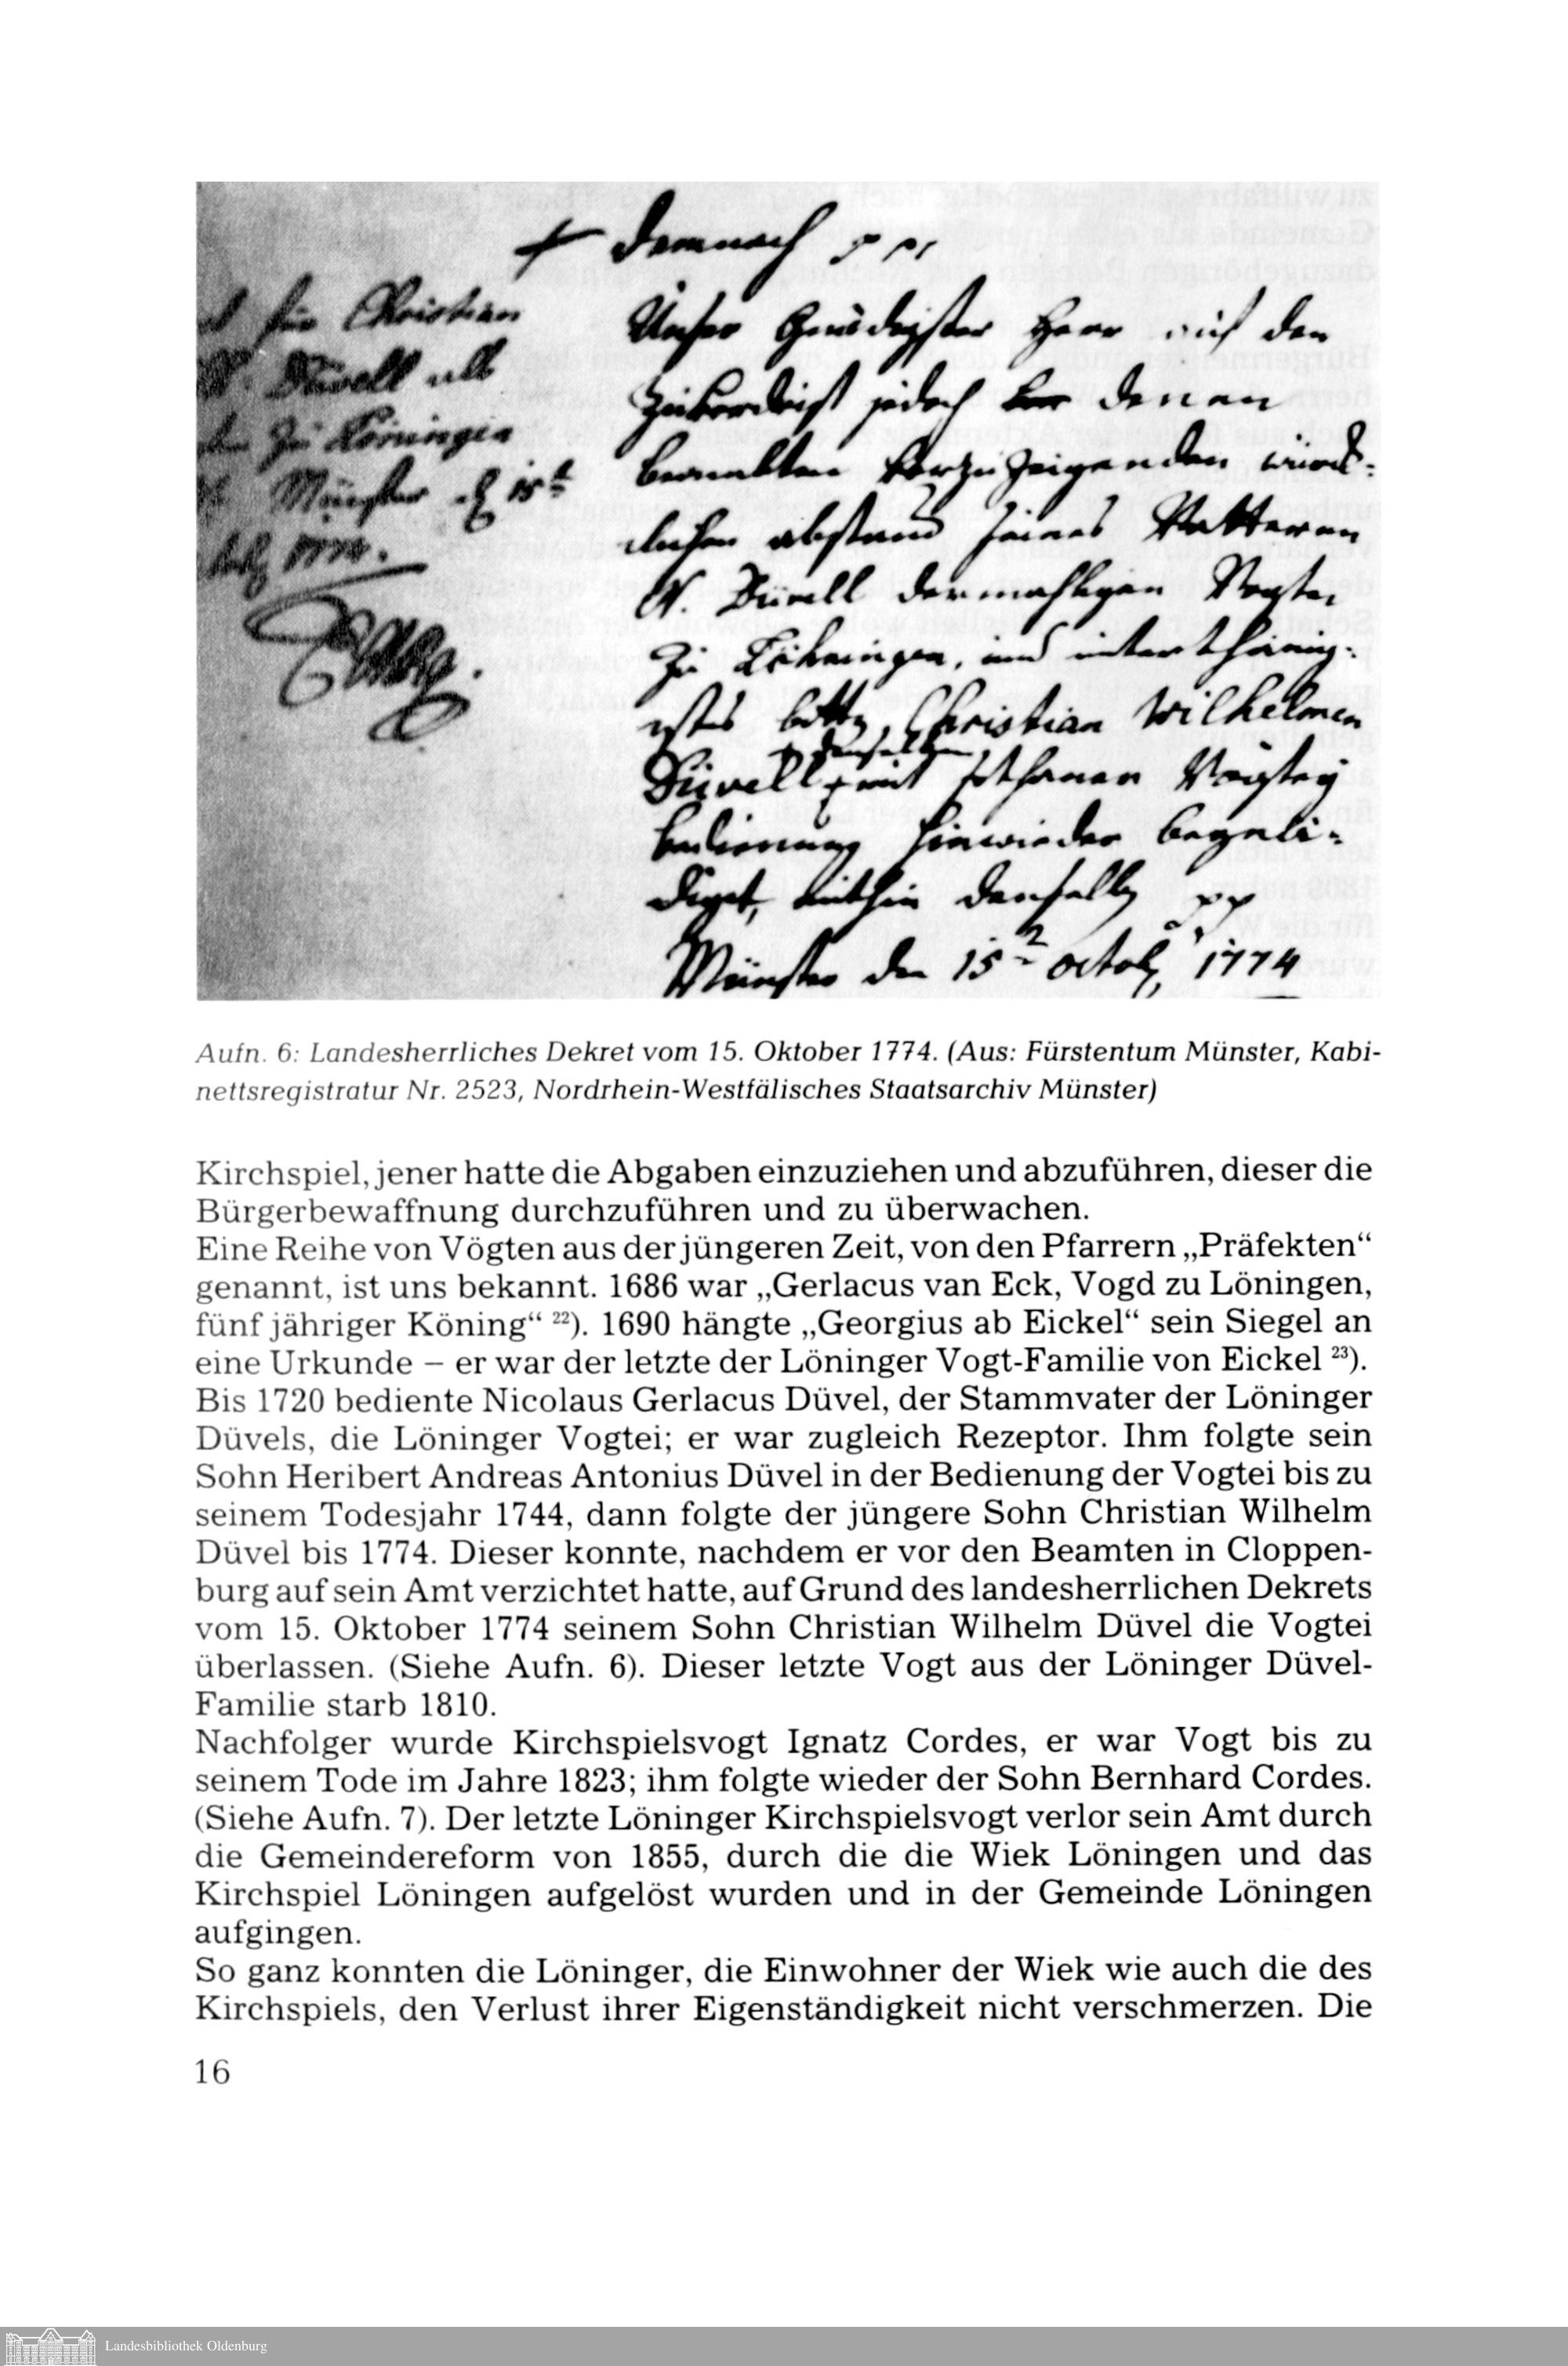 Demnach pp,
für Christian
Düvell als
zu Löningen
Münster d 15t
Unser Gnädigster Herr auf den
Zuvorderist jedoch vor denen
beamбten vorzuzeigenden würk-
lichen abstand seines Vatteren
N. Düvell dermahligen Vogten
zu Löhningen, und unterthänig-
stes bitten Christian Wilhelmen
denselben
Düvell mit sothaner Vogtey
bedienung hinwieder begnä-
diget, mithin denselben pp
Münster den 15 octob. 1774
Aufn. 6: Landesherrliches Dekret vom 15. Oktober 1774. (Aus: Fürstentum Münster, Kabi-
nettsregistratur Nr. 2523, Nordrhein-Westfälisches Staatsarchiv Münster)
Kirchspiel, jener hatte die Abgaben einzuziehen und abzuführen, dieser die
Bürgerbewaffnung durchzuführen und zu überwachen.
Eine Reihe von Vögten aus der jüngeren Zeit, von den Pfarrern „Präfekten“
genannt, ist uns bekannt. 1686 war „Gerlacus van Eck, Vogd zu Löningen,
fünf jähriger Köning“ ²²). 1690 hängte „Georgius ab Eickel“ sein Siegel an
eine Urkunde – er war der letzte der Löninger Vogt-Familie von Eickel ²³).
Bis 1720 bediente Nicolaus Gerlacus Düvel, der Stammvater der Löninger
Düvels, die Löninger Vogtei; er war zugleich Rezeptor. Ihm folgte sein
Sohn Heribert Andreas Antonius Düvel in der Bedienung der Vogtei bis zu
seinem Todesjahr 1744, dann folgte der jüngere Sohn Christian Wilhelm
Düvel bis 1774. Dieser konnte, nachdem er vor den Beamten in Cloppen-
burg auf sein Amt verzichtet hatte, auf Grund des landesherrlichen Dekrets
vom 15. Oktober 1774 seinem Sohn Christian Wilhelm Düvel die Vogtei
überlassen. (Siehe Aufn. 6). Dieser letzte Vogt aus der Löninger Düvel-
Familie starb 1810.
Nachfolger wurde Kirchspielsvogt Ignatz Cordes, er war Vogt bis zu
seinem Tode im Jahre 1823; ihm folgte wieder der Sohn Bernhard Cordes.
(Siehe Aufn. 7). Der letzte Löninger Kirchspielsvogt verlor sein Amt durch
die Gemeindereform von 1855, durch die die Wiek Löningen und das
Kirchspiel Löningen aufgelöst wurden und in der Gemeinde Löningen
aufgingen.
So ganz konnten die Löninger, die Einwohner der Wiek wie auch die des
Kirchspiels, den Verlust ihrer Eigenständigkeit nicht verschmerzen. Die
16
Landesbibliothek Oldenburg